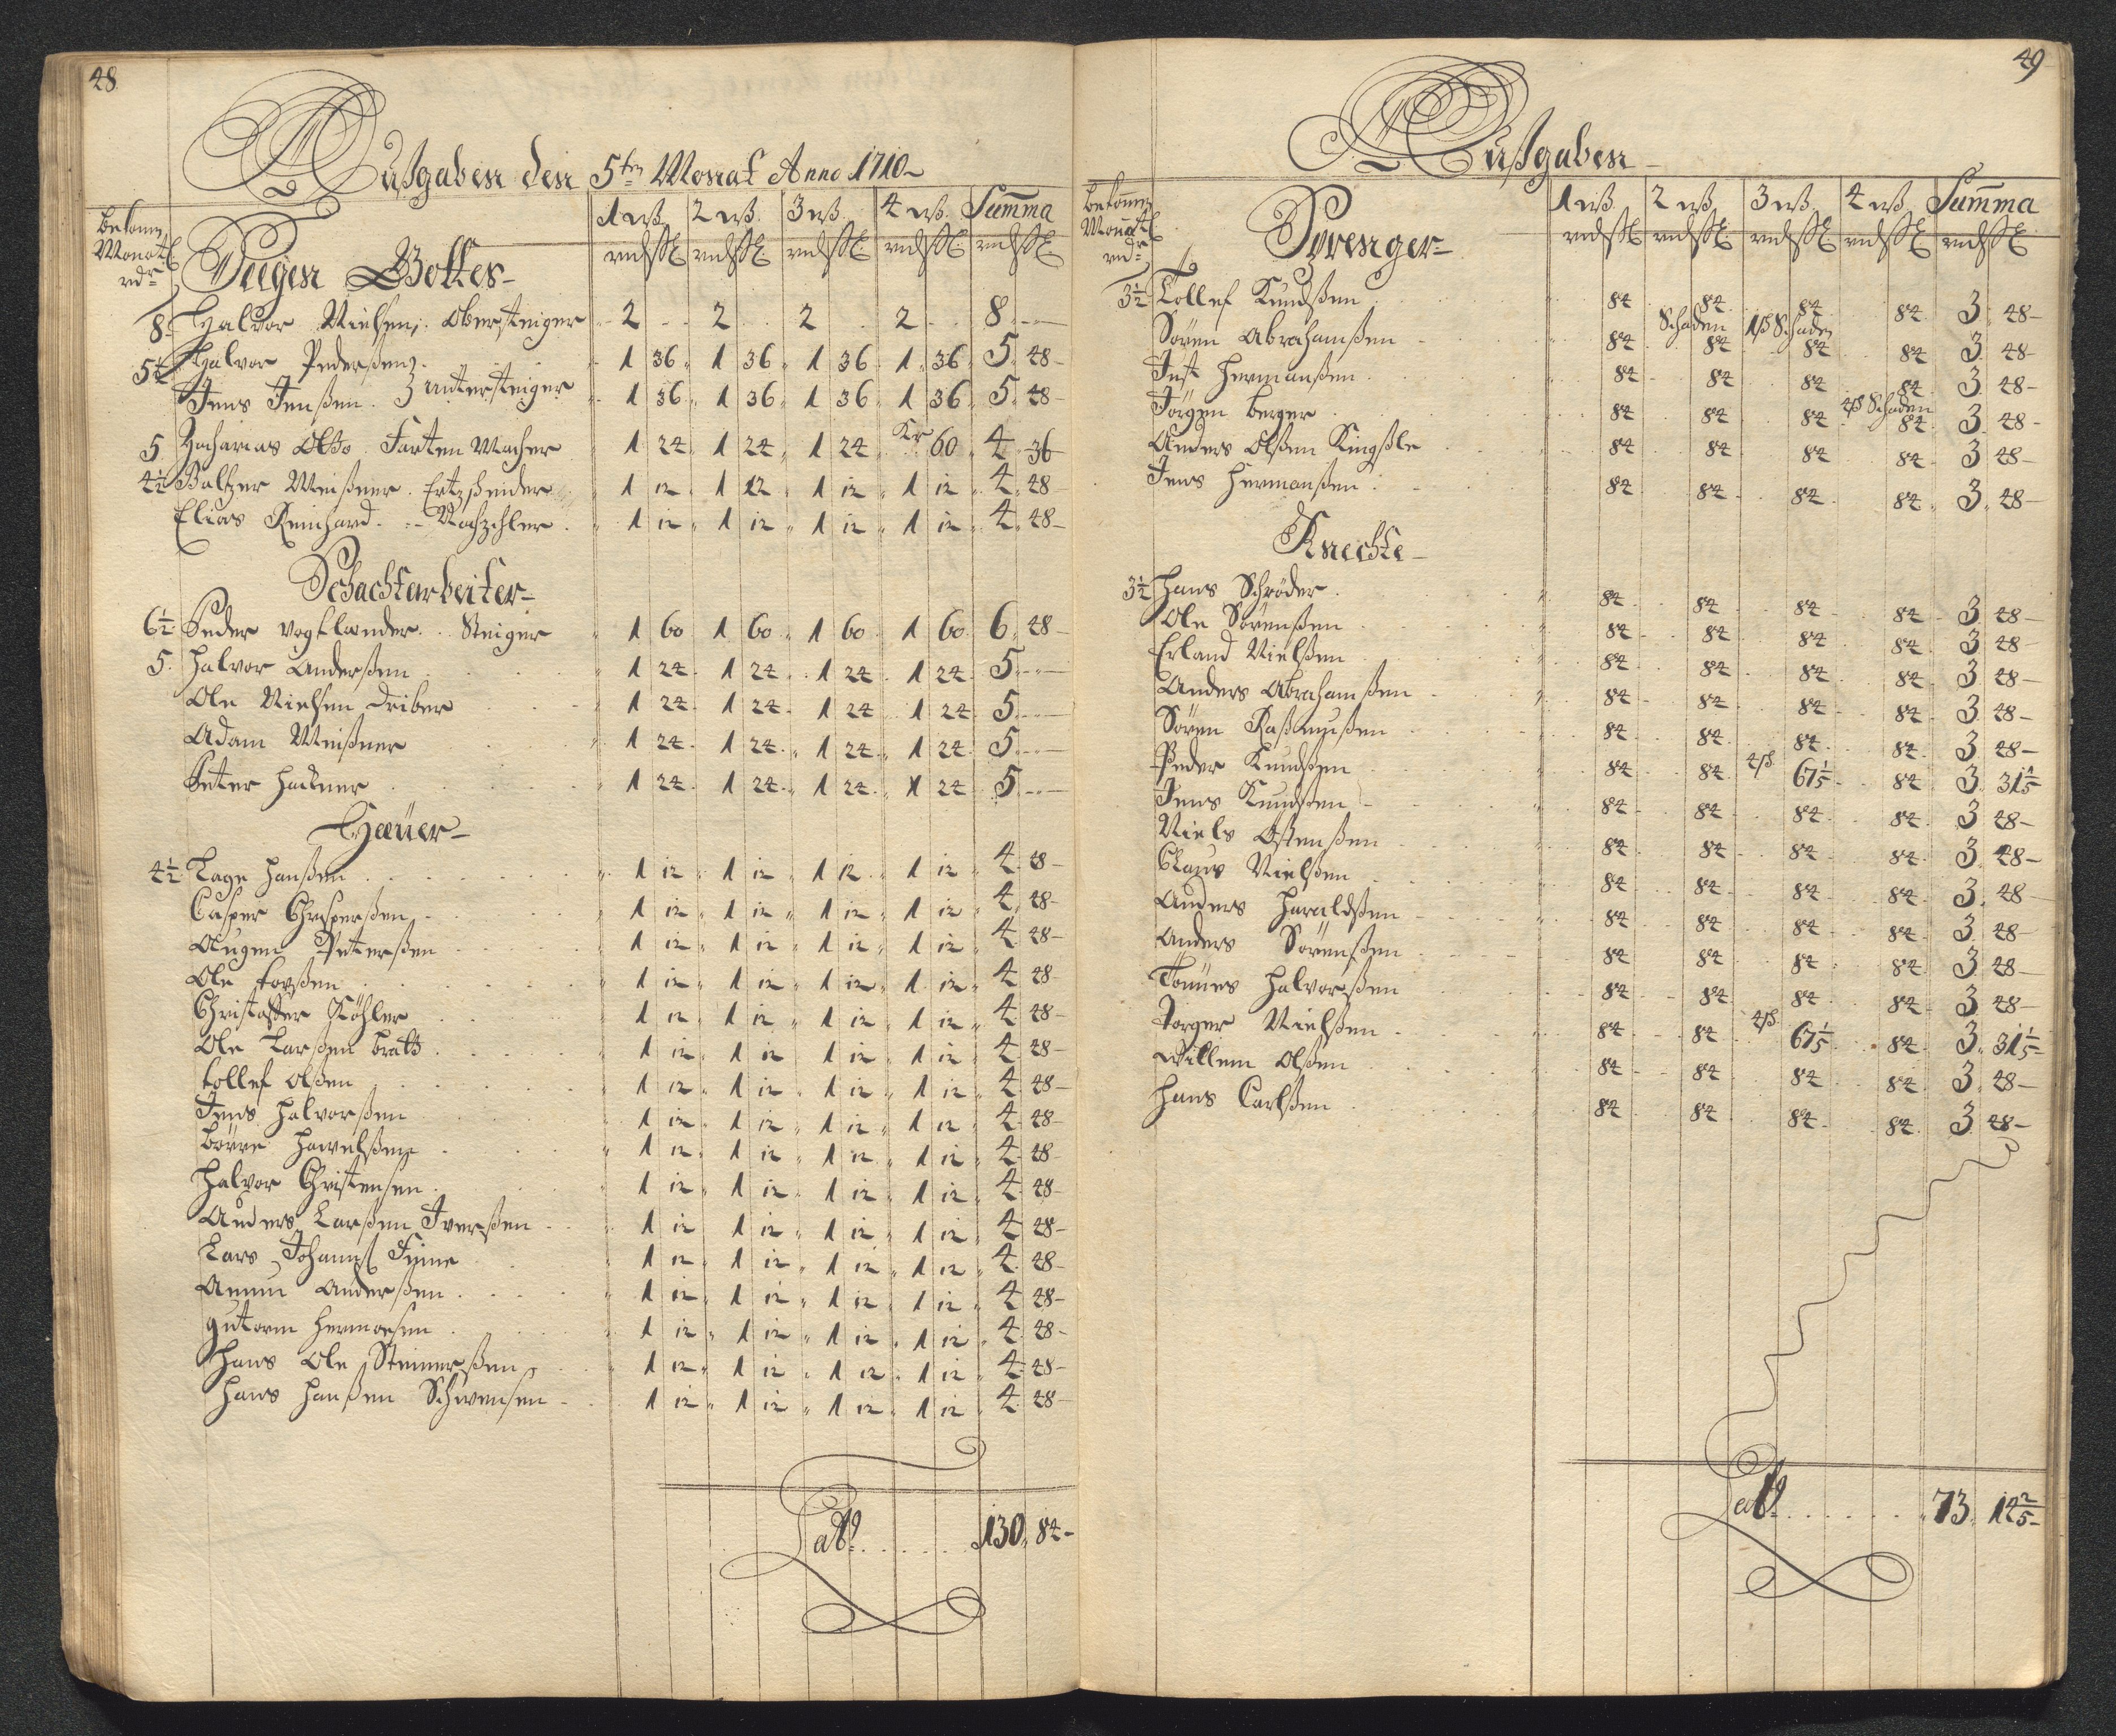 48
Außgaben den 5ten Monat Anno 1710
bekomt Monatl rdr
1 wß 2 wß 3 wß 4 wß Summa
rdßl rdßl rdßl rdßl rdßl
Seegen Gottes
8 Halvor Nielsen: Obersteiger 2 2 2 2 8
5½ Halvor Pederßen 1 36 1 36 1 36 1 36 5 48
Jens Jenßen untersteiger 1 36 1 36 1 36 1 36 5 48
5 Zacharias Otto 1 24 1 24 1 24 Kr 60 4 36
4½ Baltzer Meißner Ertzscheider 1 12 1 12 1 12 1 12 4 48
Elias Reinhard Nachzehler 1 12 1 12 1 12 1 12 4 48
Schachtarbeiter
6½ Peder Vogtlænder Steiger 1 60 1 60 1 60 1 60 6 48
5 Halvor Anderßen 1 24 1 24 1 24 1 24 5
Ole Nielsen Driber 1 24 1 24 1 24 1 24 5
Adam Meißner 1 24 1 24 1 24 1 24 5
Peter Hackner 1 24 1 24 1 24 1 24 5
Hæüer
4½ Lage Hanßen 1 12 1 12 1 12 1 12 4 48
Casper Chasperßen 1 12 1 12 1 12 1 12 4 48
Augen Peterßen 1 12 1 12 1 12 1 12 4 48
Ole Torßen 1 12 1 12 1 12 1 12 4 48
Christoffer Köhler 1 12 1 12 1 12 1 12 4 48
Ole Larßen Bratt 1 12 1 12 1 12 1 12 4 48
Tollef Olßen 1 12 1 12 1 12 1 12 4 48
Jens Halvorßen 1 12 1 12 1 12 1 12 4 48
Börre 1 12 1 12 1 12 1 12 4 48
Halvor Christensen 1 12 1 12 1 12 1 12 4 48
Anders Larßen Iverßen 1 12 1 12 1 12 1 12 4 48
Lars Johanß 1 12 1 12 1 12 1 12 4 48
Amun Anderßen 1 12 1 12 1 12 1 12 4 48
Guttorm Hermansen 1 12 1 12 1 12 1 12 4 48
Hans Ole Steinerßen 1 12 1 12 1 12 1 12 4 48
Hans Hanßen Schwensen 1 12 1 12 1 12 1 12 4 48
Lats 130 84
49
Außgaben
bekomt Monatl rdr
1 wß 2 wß 3 wß 4 wß Summa
rdßl rdßl rdßl rdßl rdßl
Sprenger
3½ Tollef Knudßen 84 84 84 84 3 48
Schaden 1ß Schaden
Sören Abrahamßen 84 84 84 84 3 48
Just Hermanßen 84 84 84 84 3 48
4ß Schaden
Jörgen Berger 84 84 84 84 3 48
Anders Olßen Kingßle 84 84 84 84 3 48
Jens Hermanßen 84 84 84 84 3 48
Knechte
3½ Hans Schröder 84 84 84 84 3 48
Ole Sörenßen 84 84 84 84 3 48
Erland Nielßen 84 84 84 84 3 48
Anders Abrahamßen 84 84 84 84 3 48
Sören Raßmußen 84 84 84 84 3 48
Peder Knudßen 84 84 4ß 67⅕ 84 3 31⅕
Jens Knudßen 84 84 84 84 3 48
Niels Ostenßen 84 84 84 84 3 48
Claus Nielßen 84 84 84 84 3 48
Anders Haraldßen 84 84 84 84 3 48
Anders Sörenßen 84 84 84 84 3 48
Tönnes Halvorßen 84 84 84 84 3 48
Torger Nielßen 84 84 4ß 67⅕ 84 3 31⅕
Willem Olßen 84 84 84 84 3 48
Hans Carlßen 84 84 84 84 3 48
Lats 73 14⅖